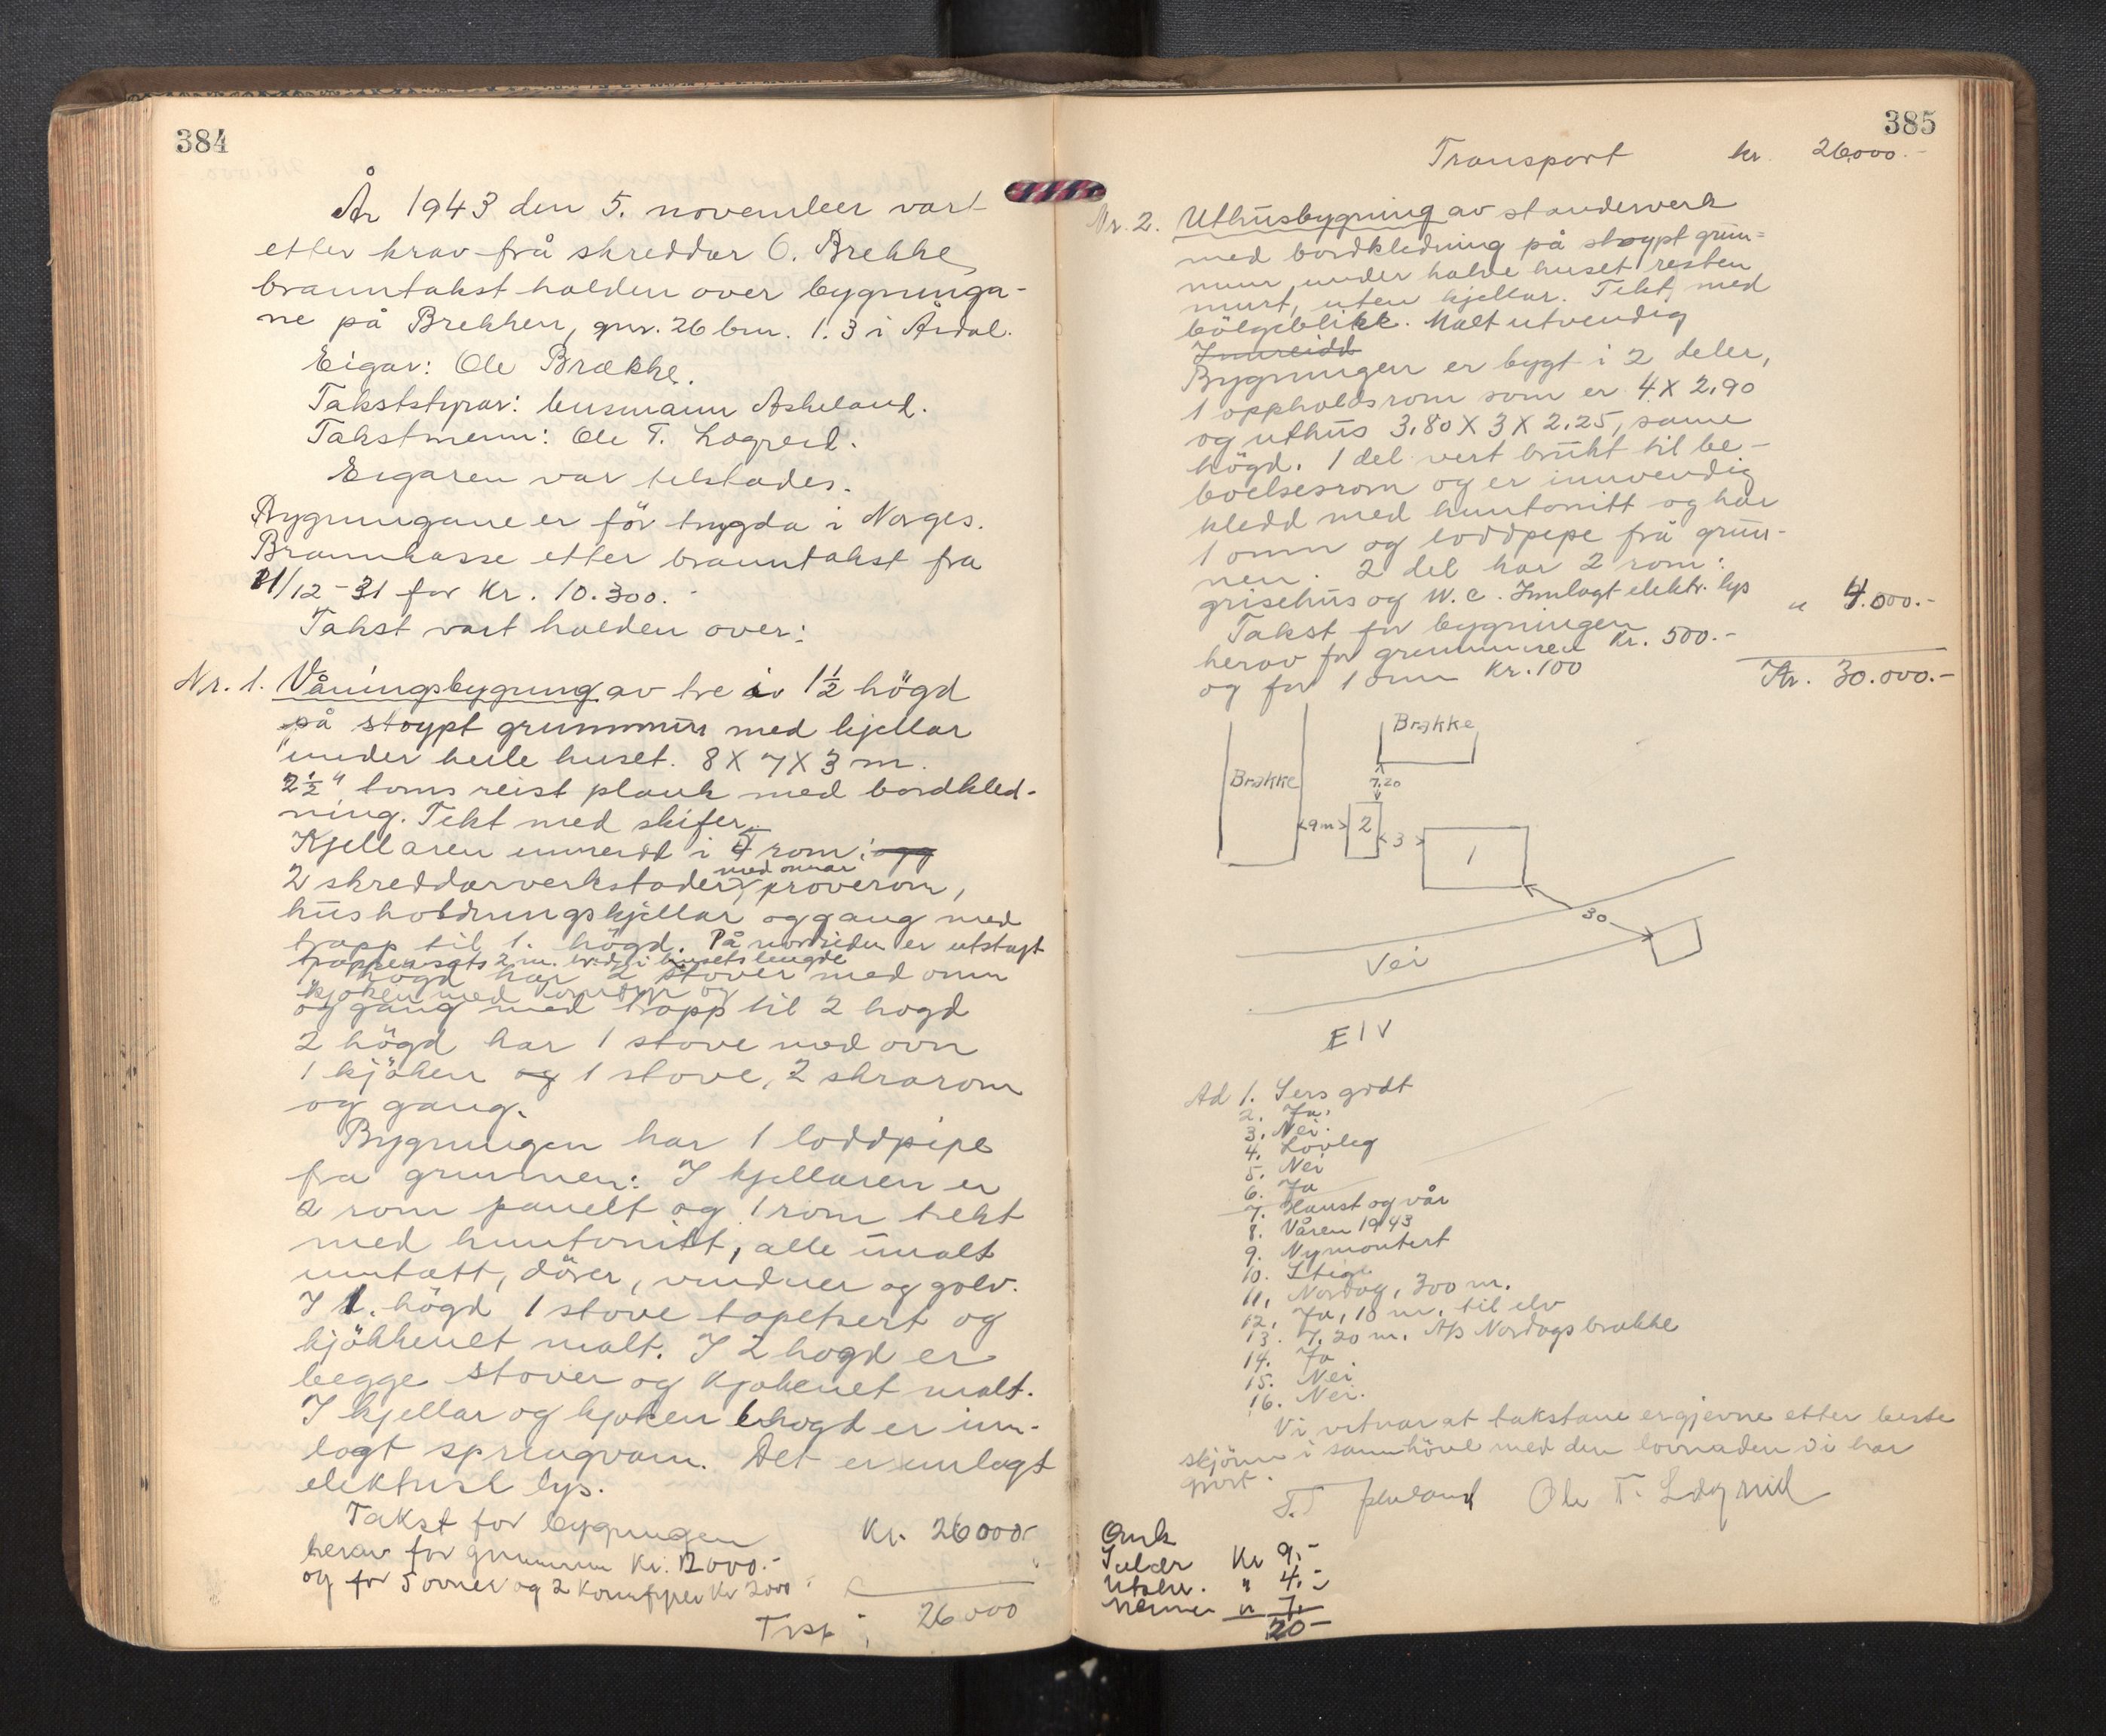 384
År 1943 den 5. november vart
etter krav frå skreddar O. Brekke
branntakst halden over bygninga-
ne på Brekken, gnr. 26 bnr. 1.3 i Årdal.
Eigar: Ole Brække.
Takststyrar: lensmann Askeland.
Takstmenn: Ole T. Lægreid.
Eigaren var tilstades.
Bygningane er för trygda i Norges.
Brannkasse etter branntakst fra
21/12-31 for Kr. 10.300.-
Takst vart halden over:
Nr. 1. Våningsbygning av tre i 1½ högd
på stoypt grunnmur med kjellar
under heile huset. 8 X 7 X 3 m.
2½" toms reist plank med bordkled-
ning. Tekt med skifer.
Kjellaren innreidd i 5 rom: og
2 skreddarverkstader med omnar, proverom,
husholdningskjellar og gang med
trapp til 1. högd. På nordsiden er utstøpt
trappesats 2 m. bred i husets lengde
högd har 2 stover med omn
kjøken med komfyr og
og gang med trapp til 2 hogd
2 högd har 1 stove med ovn
1 kjöken og 1 stove, 2 skrarom
og gang.
Bygningen har 1 loddpipe
fra grunnen: I kjellaren er
2 rom panelt og 1 rom tekt
med huntonitt, alle malt
inntatt, dörer, vinduer og golv.
I 1. högd 1 stove tapetsert og
kjökkenet malt. I 2 hogd er
begge stover og kjøkenet malt.
I kjellar og kjoken 1 hogd er inn-
lagt springvatn. Det er innlagt
elektrisk lys.
Takst for bygningen Kr. 26000.-
herav for grunnmur Kr. 2000.-
og for 5 ovner og 2 komfyrer Kr 2000
Trsp: 26000
385
Transport kr. 26000.-
Nr. 2. Uthusbygning av standerverk
med bordkledning på stoypt grun-
nmur under halve huset resten
murt, uten kjellar. Tekt med
bölgeblikk. Malt utvendig
Innreidd
Bygningen er bygt i 2 deler,
1 oppholdsrom som er 4 X 2.90
og uthus 3.80 X 3 X 2.25, same
högd. 1 del vert brukt til be-
boelsesrom og er innvendig
kledd med huntonitt og har
1 omn og loddpipe frå grun-
nen. 2 del har 2 rom:
grisehus og W.C. Innlagt elektr. lys
Takst for bygningen " 4.000.-
herav for grunnmuren Kr. 500.-
og for 1 omn Kr. 100
Kr. 30.000.-
Brakke
Brakke
7.20
9m
2
3
1
30
Vei
ELV
Ad 1. Sers godt
2. Ja.
3. Nei.
4. Lovleg
5. Nei
6. Ja
7. Haust og vår
8. Våren 1943
9. Nymontert
10. Stige
11. Nordag, 300 m.
12. Ja, 10 m. til elv
13. 7.20 m. A/s Nordags brakke
14. Ja
15. Nei
16. Nei.
Vi vitnar at takstane er gjevne etter beste
skjönn i samhöve med den lovnaden vi har
gjort.
Ole T. Lægreid
Omk
Salær Kr 9.-
Utskr. " 4.-
Menn " 7.-
20-